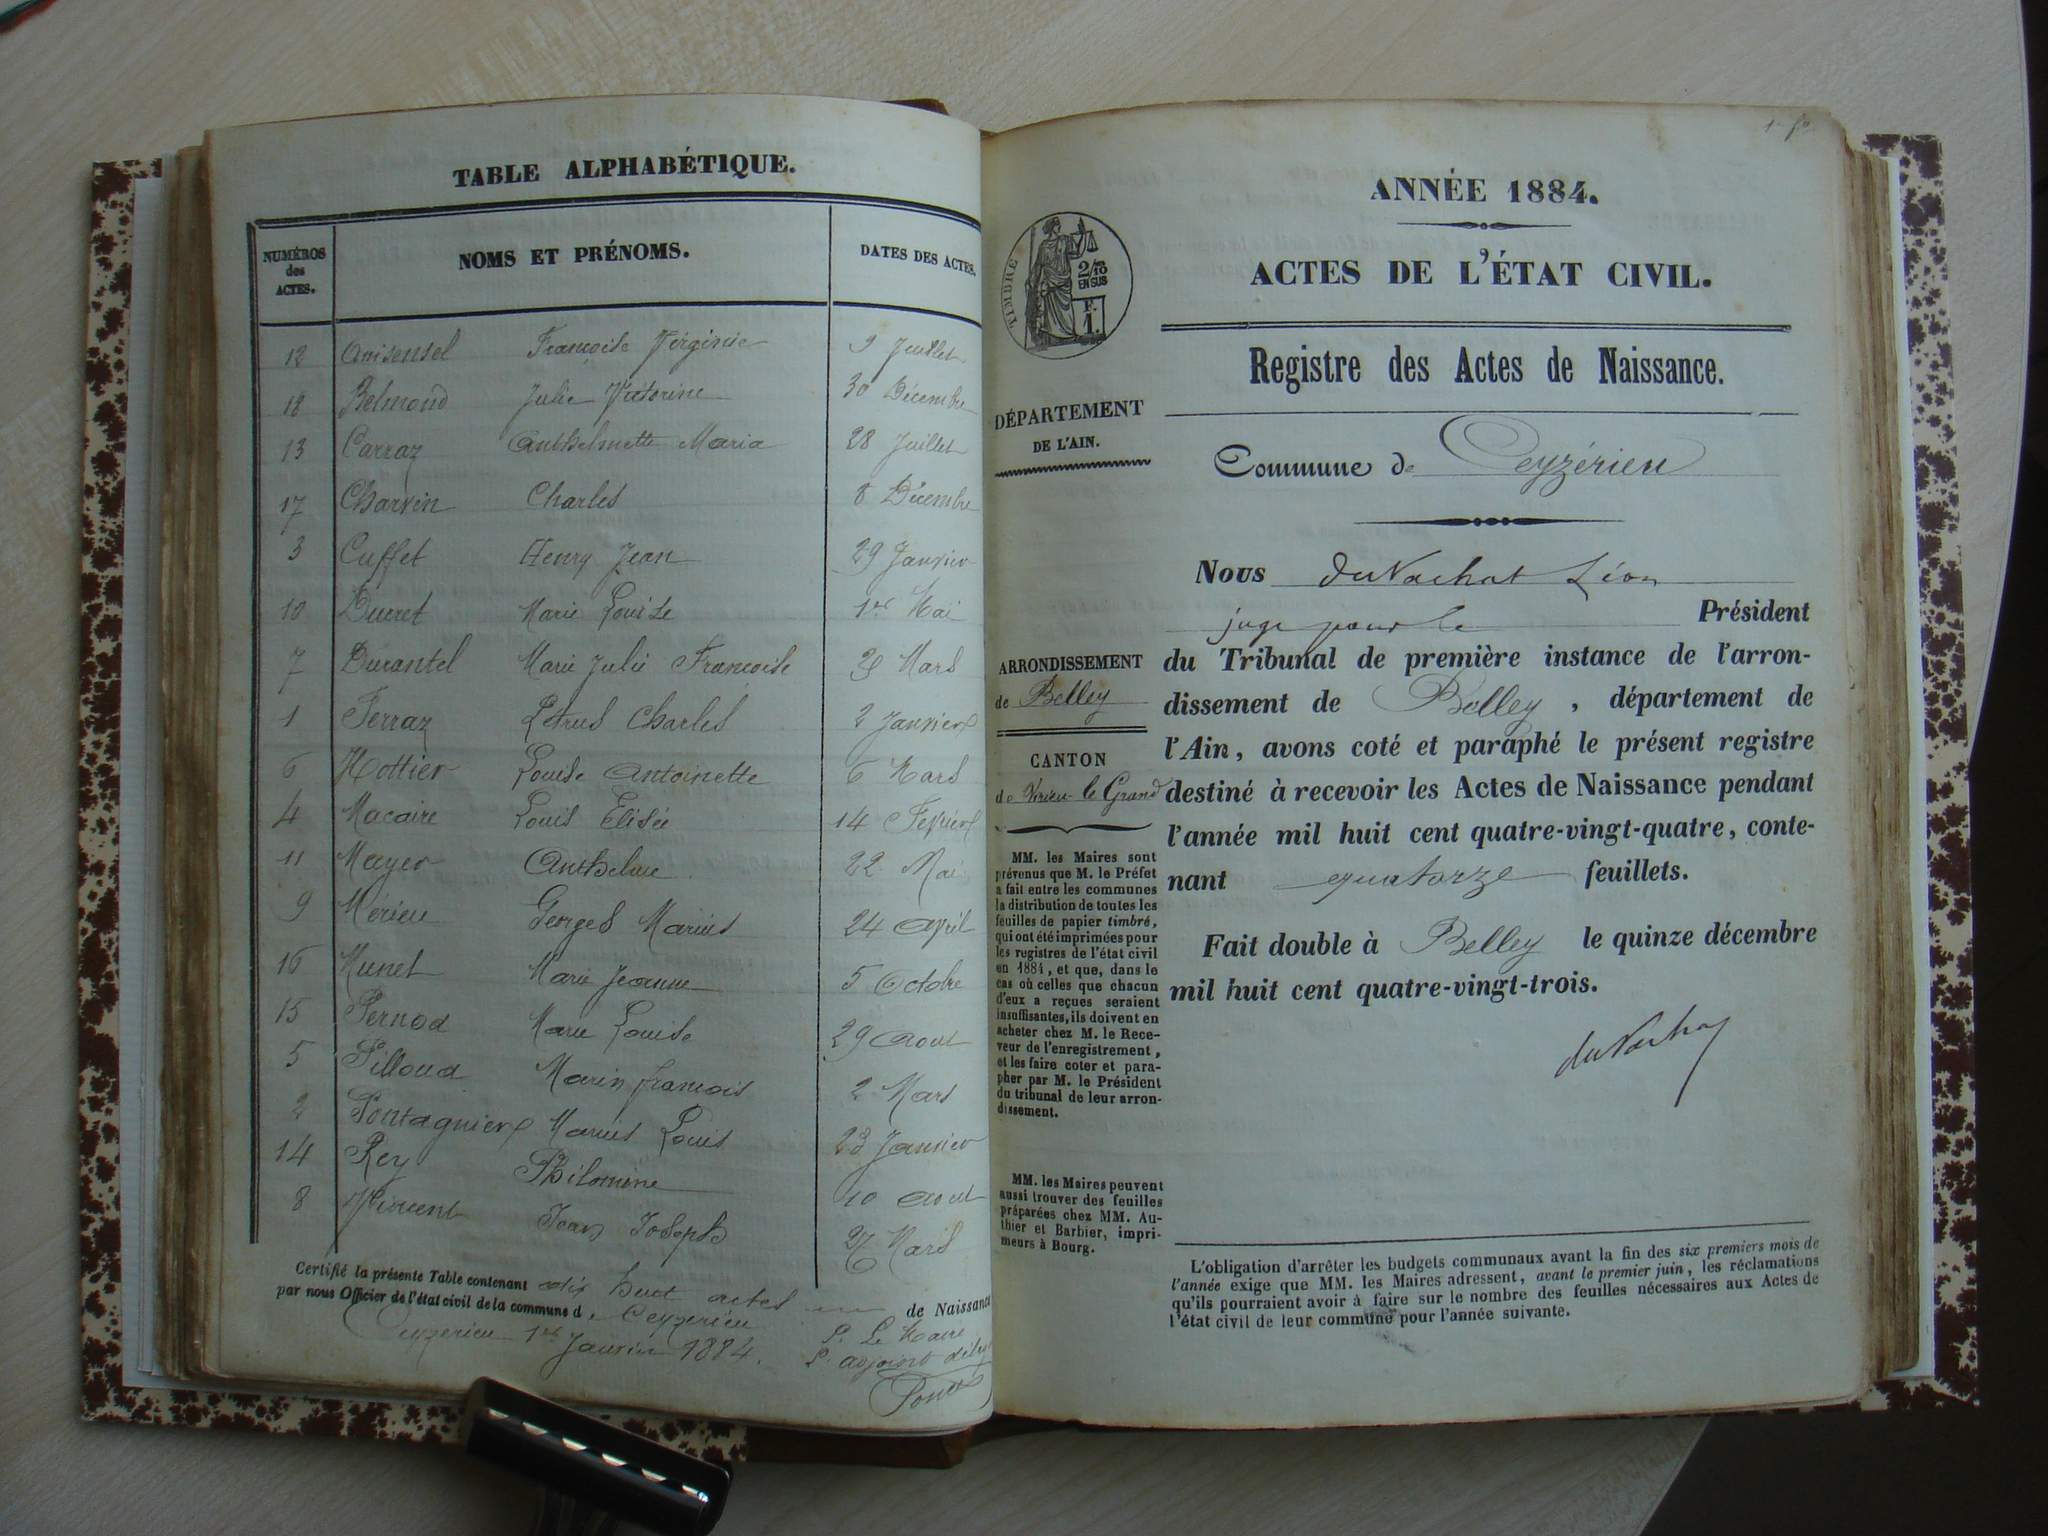 TABLE ALPHABÉTIQUE.
NUMÉROS des ACTES. NOMS ET PRÉNOMS. DATES DES ACTES.
12 Anisensel Françoise Virginie 9 Juillet
18 Belmond Julie Victorine 30 Décembre
13 Carraz Anthelmette Maria 28 Juillet
17 Charvin Charles 8 Décembre
3 Cuffet Henry Jean 29 Janvier
10 Ducret Marie Louise 1er Mai
7 Durantel Marie Julie Francoise Mars
1 Ferraz Petrus Charles 2 Janvier
6 Hottier Louise Antoinette 6 Mars
4 Macaire Louis Elisée 14 Fevrier
11 Mayer Anthelme 22 Mai
9 Mérieu Georges Marius 24 Avril
16 Munet Marie Jeanne 5 Octobre
15 Pernod Marie Louise 29 Aout
5 Pilloud Marin francois 2 Mars
2 Pontagnier Marius Louis 23 Janvier
14 Rey Philomène 10 Aout
8 Vincent Jean Joseph 27 Mars
Certifié la présente Table contenant dix huit actes de Naissance
par nous Officier de l'état civil de la commune d. Ceyzerieu
Ceyzerieu 1er Janvier 1884.
P. Le Maire
L'adjoint
1er fo
ANNÉE 1884.
ACTES DE L'ÉTAT CIVIL.
TIMBRE
2/10
EN SUS
F.
1.
Registre des Actes de Naissance.
DÉPARTEMENT
DE L'AIN.
Commune de Ceyzérieu
Nous duVachat Léon
juge pour le Président
du Tribunal de première instance de l'arron-
dissement de Belley, département de
l'Ain, avons coté et paraphé le présent registre
destiné à recevoir les Actes de Naissance pendant
l'année mil huit cent quatre-vingt-quatre, conte-
nant quatorze feuillets.
Fait double à Belley le quinze décembre
mil huit cent quatre-vingt-trois.
duVachat
ARRONDISSEMENT
de Belley
CANTON
de Virieu-le Grand
MM. les Maires sont
prévenus que M. le Préfet
a fait entre les communes
la distribution de toutes les
feuilles de papier timbré,
qui ont été imprimées pour
les registres de l'état civil
en 1884, et que, dans le
cas où celles que chacun
d'eux a reçues seraient
insuffisantes, ils doivent en
acheter chez M. le Rece-
veur de l'enregistrement,
et les faire coter et para-
pher par M. le Président
du tribunal de leur arron-
dissement.
MM. les Maires peuvent
aussi trouver des feuilles
préparées chez MM. Au-
thier et Barbier, impri-
meurs à Bourg.
L'obligation d'arrêter les budgets communaux avant la fin des six premiers mois de
l'année exige que MM. les Maires adressent, avant le premier juin, les réclamations
qu'ils pourraient avoir à faire sur le nombre des feuilles nécessaires aux Actes de
l'état civil de leur commune pour l'année suivante.